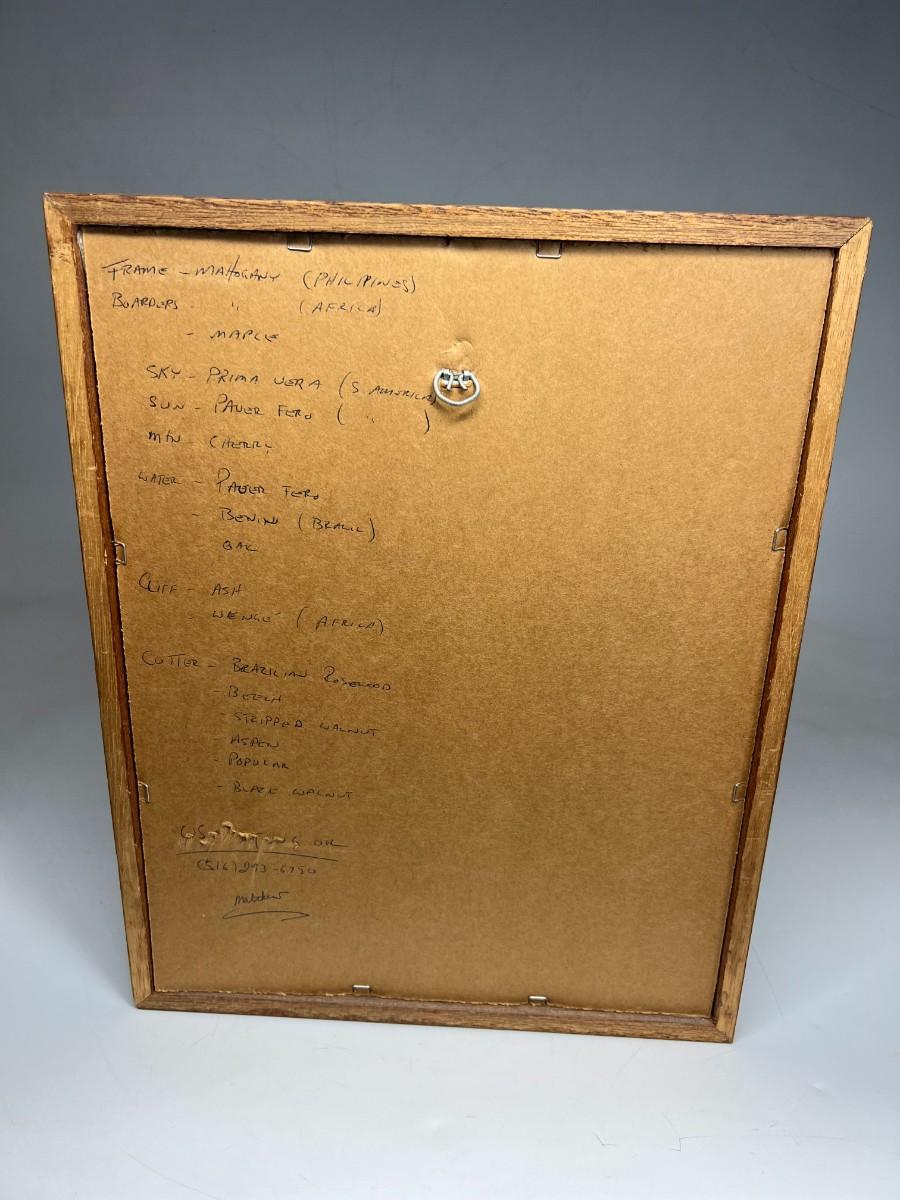 FRAME - MAHOGANY (PHILIPINES)
BOARDERS - " (AFRICA)
- MAPLE
SKY - PRIMA VERA (S. AMERICA)
SUN - PAUER FERO ( " )
MTN - CHERRY
WATER - PAUER FERO
- BENIN (BRAZIL)
- OAK
CLIFF - ASH
- WENGÉ (AFRICA)
CUTTER - BRAZILIAN ROSEWOOD
- BEECH
- STRIPPED WALNUT
- ASPEN
- POPULAR
- BLACK WALNUT
DR
(516) 293-6750